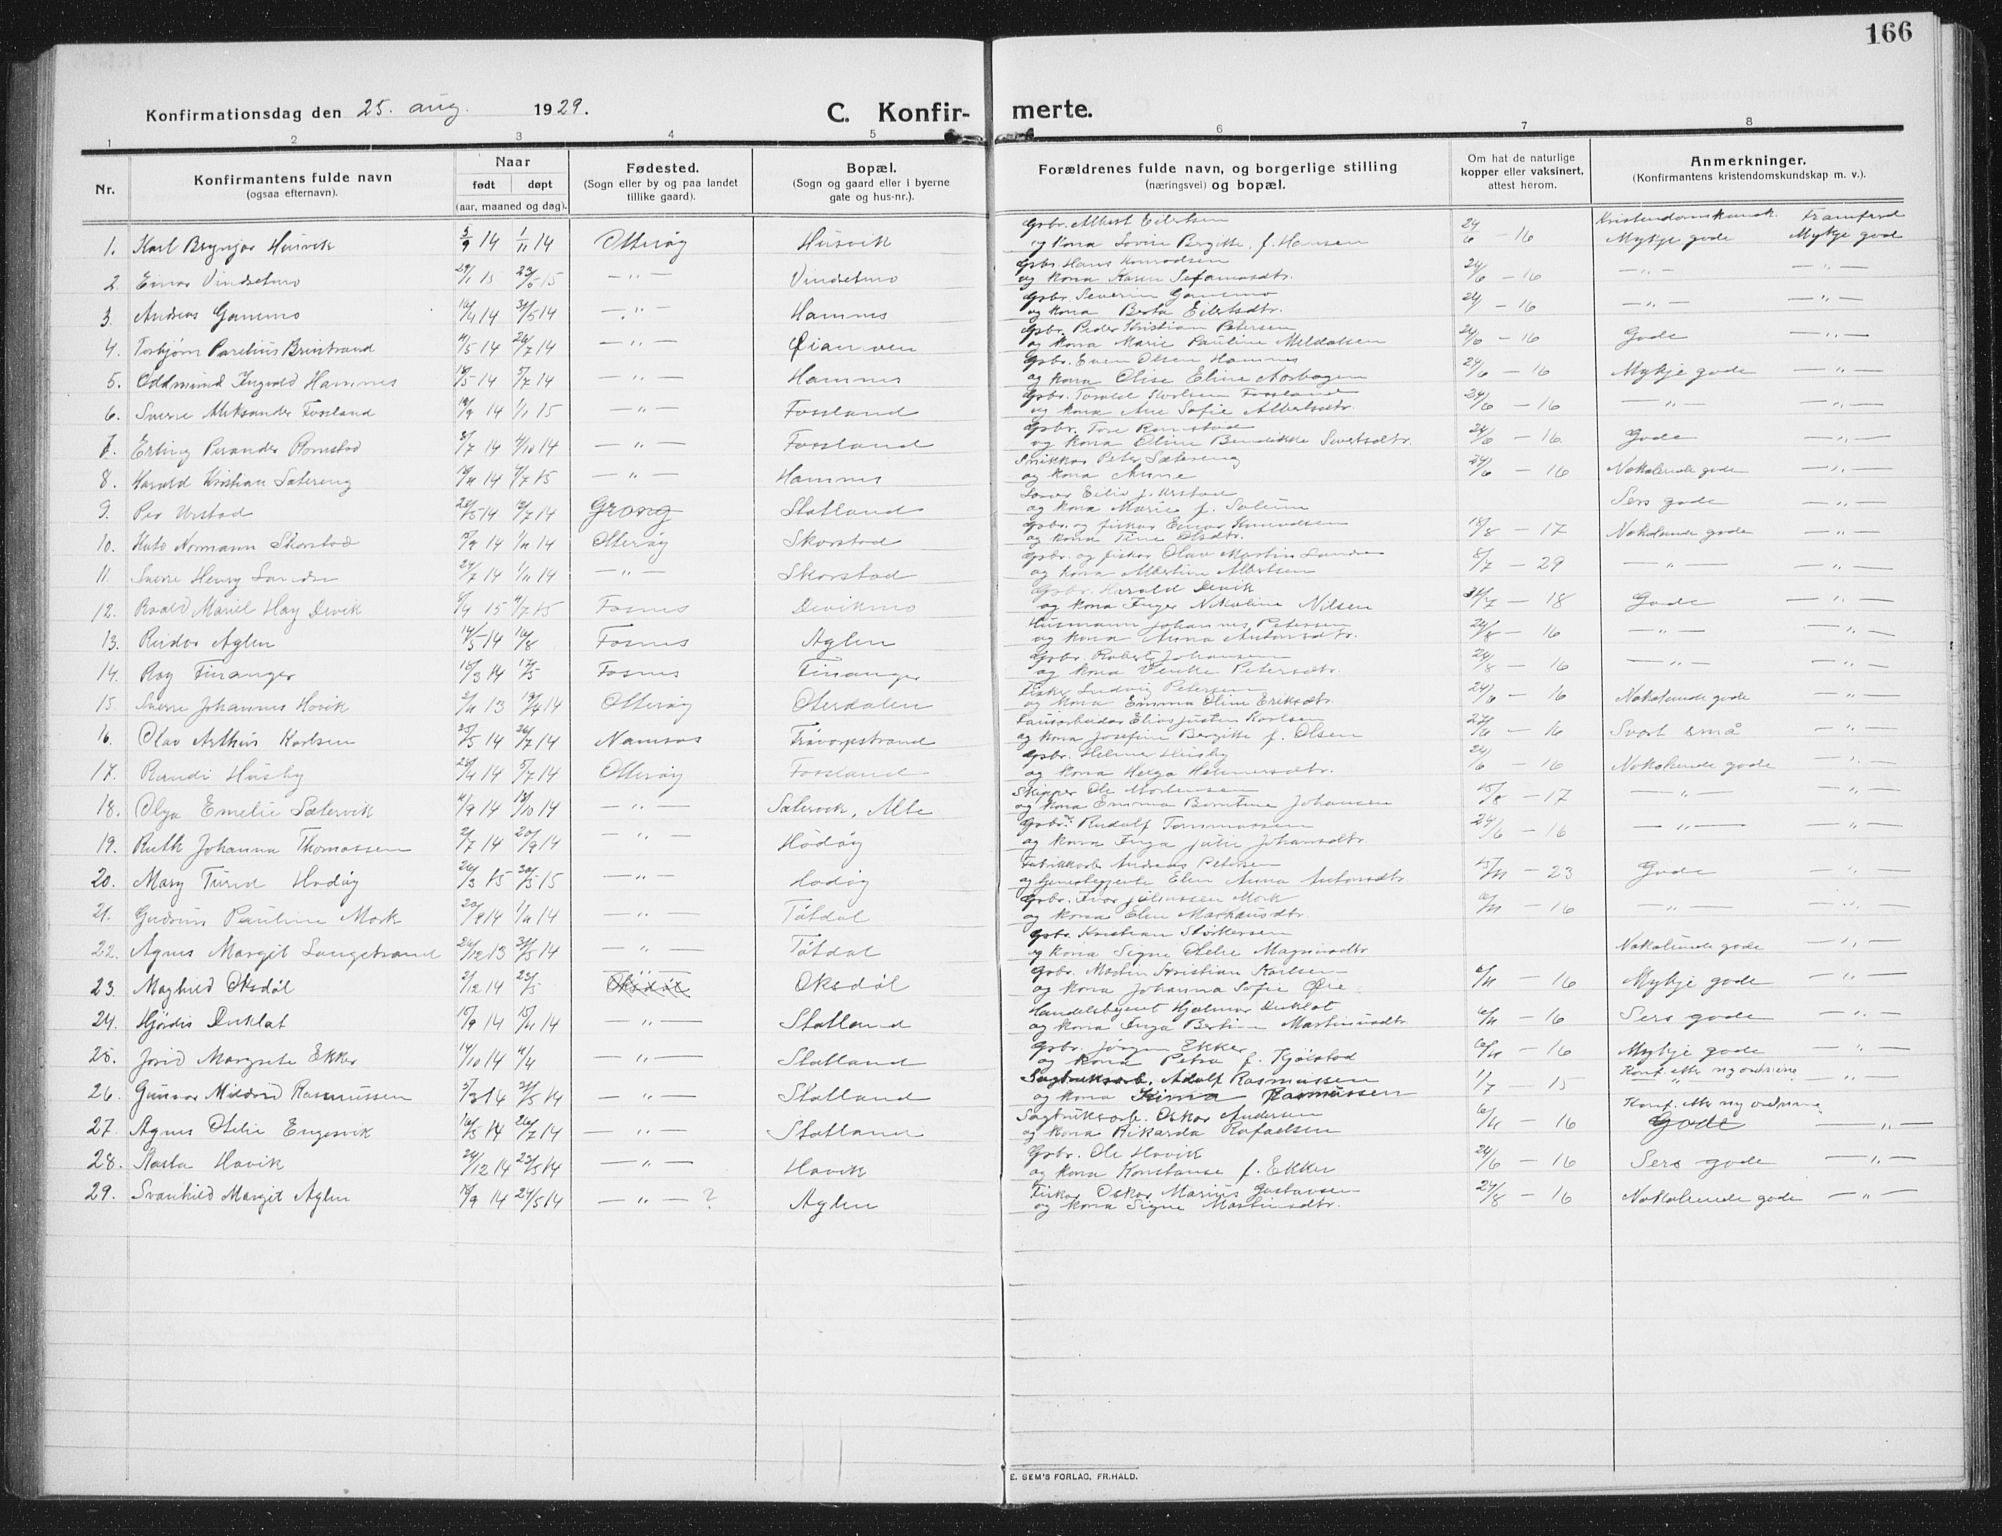 166
Konfirmationsdag den 25. aug. 1929.
C. Konfir- merte.
1 2 3 4 5 6 7 8
Nr.
Konfirmantens fulde navn
(ogsaa efternavn).
Naar
født døpt
(aar, maaned og dag).
Fødested.
(Sogn eller by og paa landet
tillike gaard).
Bopæl.
(Sogn og gaard eller i byerne
gate og hus-nr.).
Forældrenes fulde navn, og borgerlige stilling
(næringsvei) og bopæl.
Om hat de naturlige
kopper eller vaksinert,
attest herom.
Anmerkninger.
(Konfirmantens kristendomskundskap m. v.).
Kristendomskunsk. Framferd
1. Karl Brynjar Husvik 5/9 14 1/11 14 Otterøy Husvik Gbr. Albert Eilertsen
og kona Lovise Bergitte f. Hansen 24/6 - 16 Mykje gode Mykje god
2. Einar Vindsetmo 15 23/5 15 — " — Vindsetmo Gbr. Hans Konradsen
og kona Karen 24/6 - 16 — " — — " —
3. Andreas Gansmo 16/4 14 31/5 14 — " — Hamnes Gbr. Severin Gansmo
og kona Berta Eilertsdtr. 24/ - 16 — " — — " —
4. Torbjørn Parelius 14 26/7 14 — " — Gbr. Peder Kristian Petersen
og kona Marie Pauline 24/6 - 16 Gode — " —
5. Oddmund Ingvald Hamnes 14 5/7 14 — " — Hamnes Gbr. Even Olsen Hamnes
og kona Olise Eline 24/6 - 16 Mykje gode — " —
6. Sverre Aleksander Fossland 19/9 14 1/1 15 — " — Fossland Gbr. Fossland
og kona Ane Sofie Albertsdtr. 24/6 - 16 — " — — " —
7. Erling Perander Romstad 14 4/10 14 — " — Fossland Gbr. Tore Romstad
og kona Oline Bendikke Sivertsdtr. 24/6 - 16 Gode — " —
8. Harald Kristian Sætereng 14 15 — " — Hamnes Snikkar Peter Sætereng
og kona Anne 24/6 - 16 Nokolunde gode — " —
9. Per Urstad 14 14 Grong Statland Urstad
og kona Marie f. Solum Sers gode — " —
10. Normann Skorstad 14 1/11 14 Otterøy Skorstad Gbr. og fiskar Einar
og kona Tine Olsdtr. 18/8 - 17 Nokolunde gode — " —
11. Sverre Henry 24/7 14 1/11 14 — " — Skorstad Gbr. og fiskar Olav Martin
og kona Albertine Albertsen 5/7 - 29 — " — — " —
12. Roald Mariel Hay Devik 15 15 Fosnes Devikmo Gbr. Harald Devik
og kona Inger Nikoline Nilsen 18 Gode — " —
13. Reidar Aglen 14/5 14 16/8 Fosnes Aglen Husmann Johannes Petersen
og kona Anna Antonsdtr. 24/8 - 16 — " — — " —
14. Roy Finanger 15/3 14 17/5 Fosnes Finanger Gbr. Robert Johansen
og kona Petersdtr. 24/8 - 16 — " — — " —
15. Sverre Johannes Hovik 13 14 Otterøy Oterdalen Fiskar Ludvig Petersen
og kona Emma Oline Eriksdtr. 24/6 - 16 Nokolunde gode — " —
16. Olav Arthur Karlsen 25/5 14 26/7 14 Namsos Elias Justen Karlsen
og kona Josefine Bergitte f. Olsen 16 Svært små — " —
17. Randi Husby 14 5/7 14 Otterøy Fossland Gbr. Helmer Husby
og kona Helga Helmersdtr. 24/6 - 16 Nokolunde gode — " —
18. Olga Emelie Sætervik 4/9 14 18/10 14 — " — Sætervik, Alte Skipper Ole Mortensen
og kona Emma Berntine Johansen 15/8 - 17 — " — — " —
19. Ruth Johanna Thomassen 2/7 14 20/9 14 — " — Hodøy Gbr. Rudolf Tommassen
og kona Inga Julie Johansdtr. 24/6 - 16 — " — — " —
20. Mary Turid Hodøy 26/3 15 30/5 15 — " — Hodøy Fabrikkarb. Andreas Petersen
og Elen Anna Antonsdtr. 23 Gode — " —
21. Gudrun Pauline Mork 20/8 14 1/11 14 — " — Tøtdal Gbr. Ivar Johnssen Mork
og kona Elen Markusdtr. 6/11 - 16 — " — — " —
22. Agnes Margit Langstrand 26/12 13 31/5 14 — " — Tøtdal Gbr. Kristian Størkersen
og kona Signe Otelie Magnusdtr. Nokolunde gode — " —
23. Maghild Oksdøl 2/12 14 23/5 Oksdøl Oksdøl Gbr. Martin Kristian Karlsen
og kona Johanna Sofie Øie 6/11 - 16 Mykje gode — " —
24. Hjørdis Duklat 15/9 14 15/11 14 — " — Statland Handelsbetjent Hjalmar Duklat
og kona Inga Bertine Martinusdtr. 6/11 - 16 Sers gode — " —
25. Jorid Margrete Ekker 14/10 14 4/4 — " — Statland Gbr. Jørgen Ekker
og kona Petra f. Kjølstad 6/11 - 16 Mykje gode — " —
26. Gunvor Mildrid Rasmussen 3/3 14 31/5 14 — " — Statland Sagbruksarb. Adolf Rasmussen
og kona Rasmussen 1/7 15 Konf. etter ny ordning "
27. Agnes Otelie Engesvik 16/5 14 26/7 14 — " — Statland Sagbruksarb. Oskar Andersen
og kona Rikarda Rafaelsen 6/11 - 16 Konf. etter ny ordning Gode — " —
28. Aasta Hovik 24/12 14 23/5 14 — " — Hovik Gbr. Ole Hovik
og kona Konstanse f. Ekker 24/6 - 16 Sers gode — " —
29. Svanhild Margit Aglen 18/9 14 24/5 14 — " — ? Aglen Fiskar Oskar Marius Gustavsen
og kona Signe Martinusdtr. 24/8 - 16 Nokolunde gode — " —
E. SEM'S FORLAG, FR.HALD.